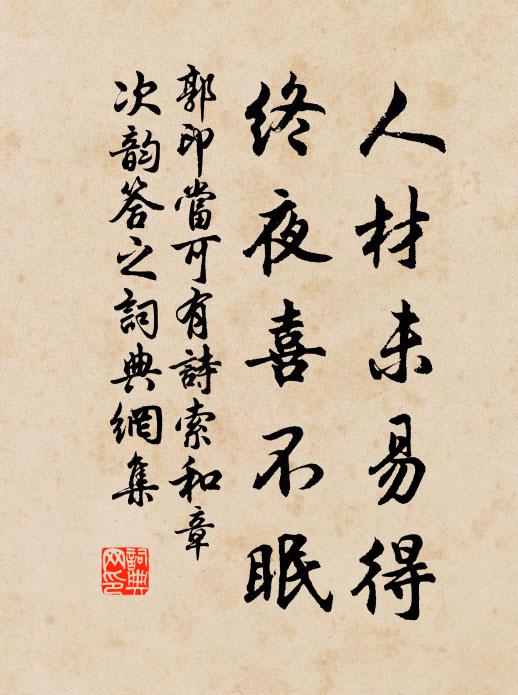 人材未易得
終夜喜不眠
郭印當可有詩索和章
次韵答之詞典網集
詞典
网印